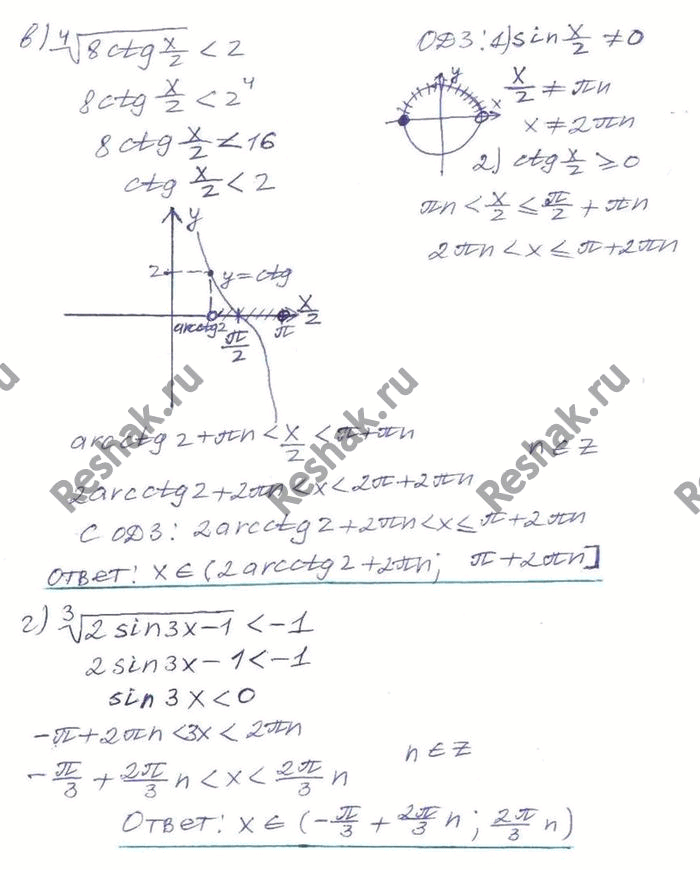 в) ⁴√(8ctg x/2) < 2
8ctg x/2 < 2⁴
8ctg x/2 < 16
ctg x/2 < 2
ОДЗ: 1) sin x/2 ≠ 0
x/2 ≠ πn
x ≠ 2πn
2) ctg x/2 ≥ 0
πn < x/2 ≤ π/2 + πn
2πn < x ≤ π + 2πn
y
x
y
2
y = ctg
x/2
arcctg2
π/2
π
arcctg 2 + πn < x/2 < π + πn
n ∈ Z
2arcctg 2 + 2πn < x < 2π + 2πn
С ОДЗ: 2arcctg 2 + 2πn < x ≤ π + 2πn
Ответ: x ∈ (2arcctg 2 + 2πn; π + 2πn]
г) ³√(2 sin3x - 1) < -1
2 sin 3x - 1 < -1
sin 3x < 0
-π + 2πn < 3x < 2πn
n ∈ Z
-π/3 + 2π/3 n < x < 2π/3 n
Ответ: x ∈ (-π/3 + 2π/3 n; 2π/3 n)
Reshak.ru
Reshak.ru
Reshak.ru
ru